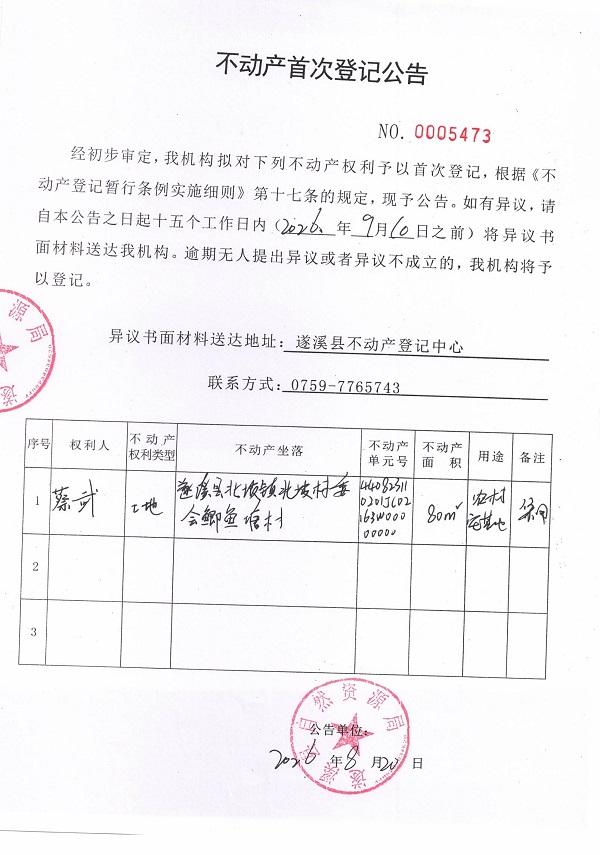 不动产首次登记公告
NO. 0005473
经初步审定，我机构拟对下列不动产权利予以首次登记，根据《不
动产登记暂行条例实施细则》第十七条的规定，现予公告。如有异议，请
自本公告之日起十五个工作日内（2026年9月10日之前）将异议书
面材料送达我机构。逾期无人提出异议或者异议不成立的，我机构将予
以登记。
异议书面材料送达地址：遂溪县不动产登记中心
联系方式：0759-7765743
序号 权利人 不动产权利类型 不动产坐落 不动产单元号 不动产面积 用途 备注
1 蔡武 土地 遂溪县北坡镇北坡村委 80m² 农村
会鲫鱼塘村 宅基地
2
3
遂溪县自然资源局
公告单位：
2026年8月20日